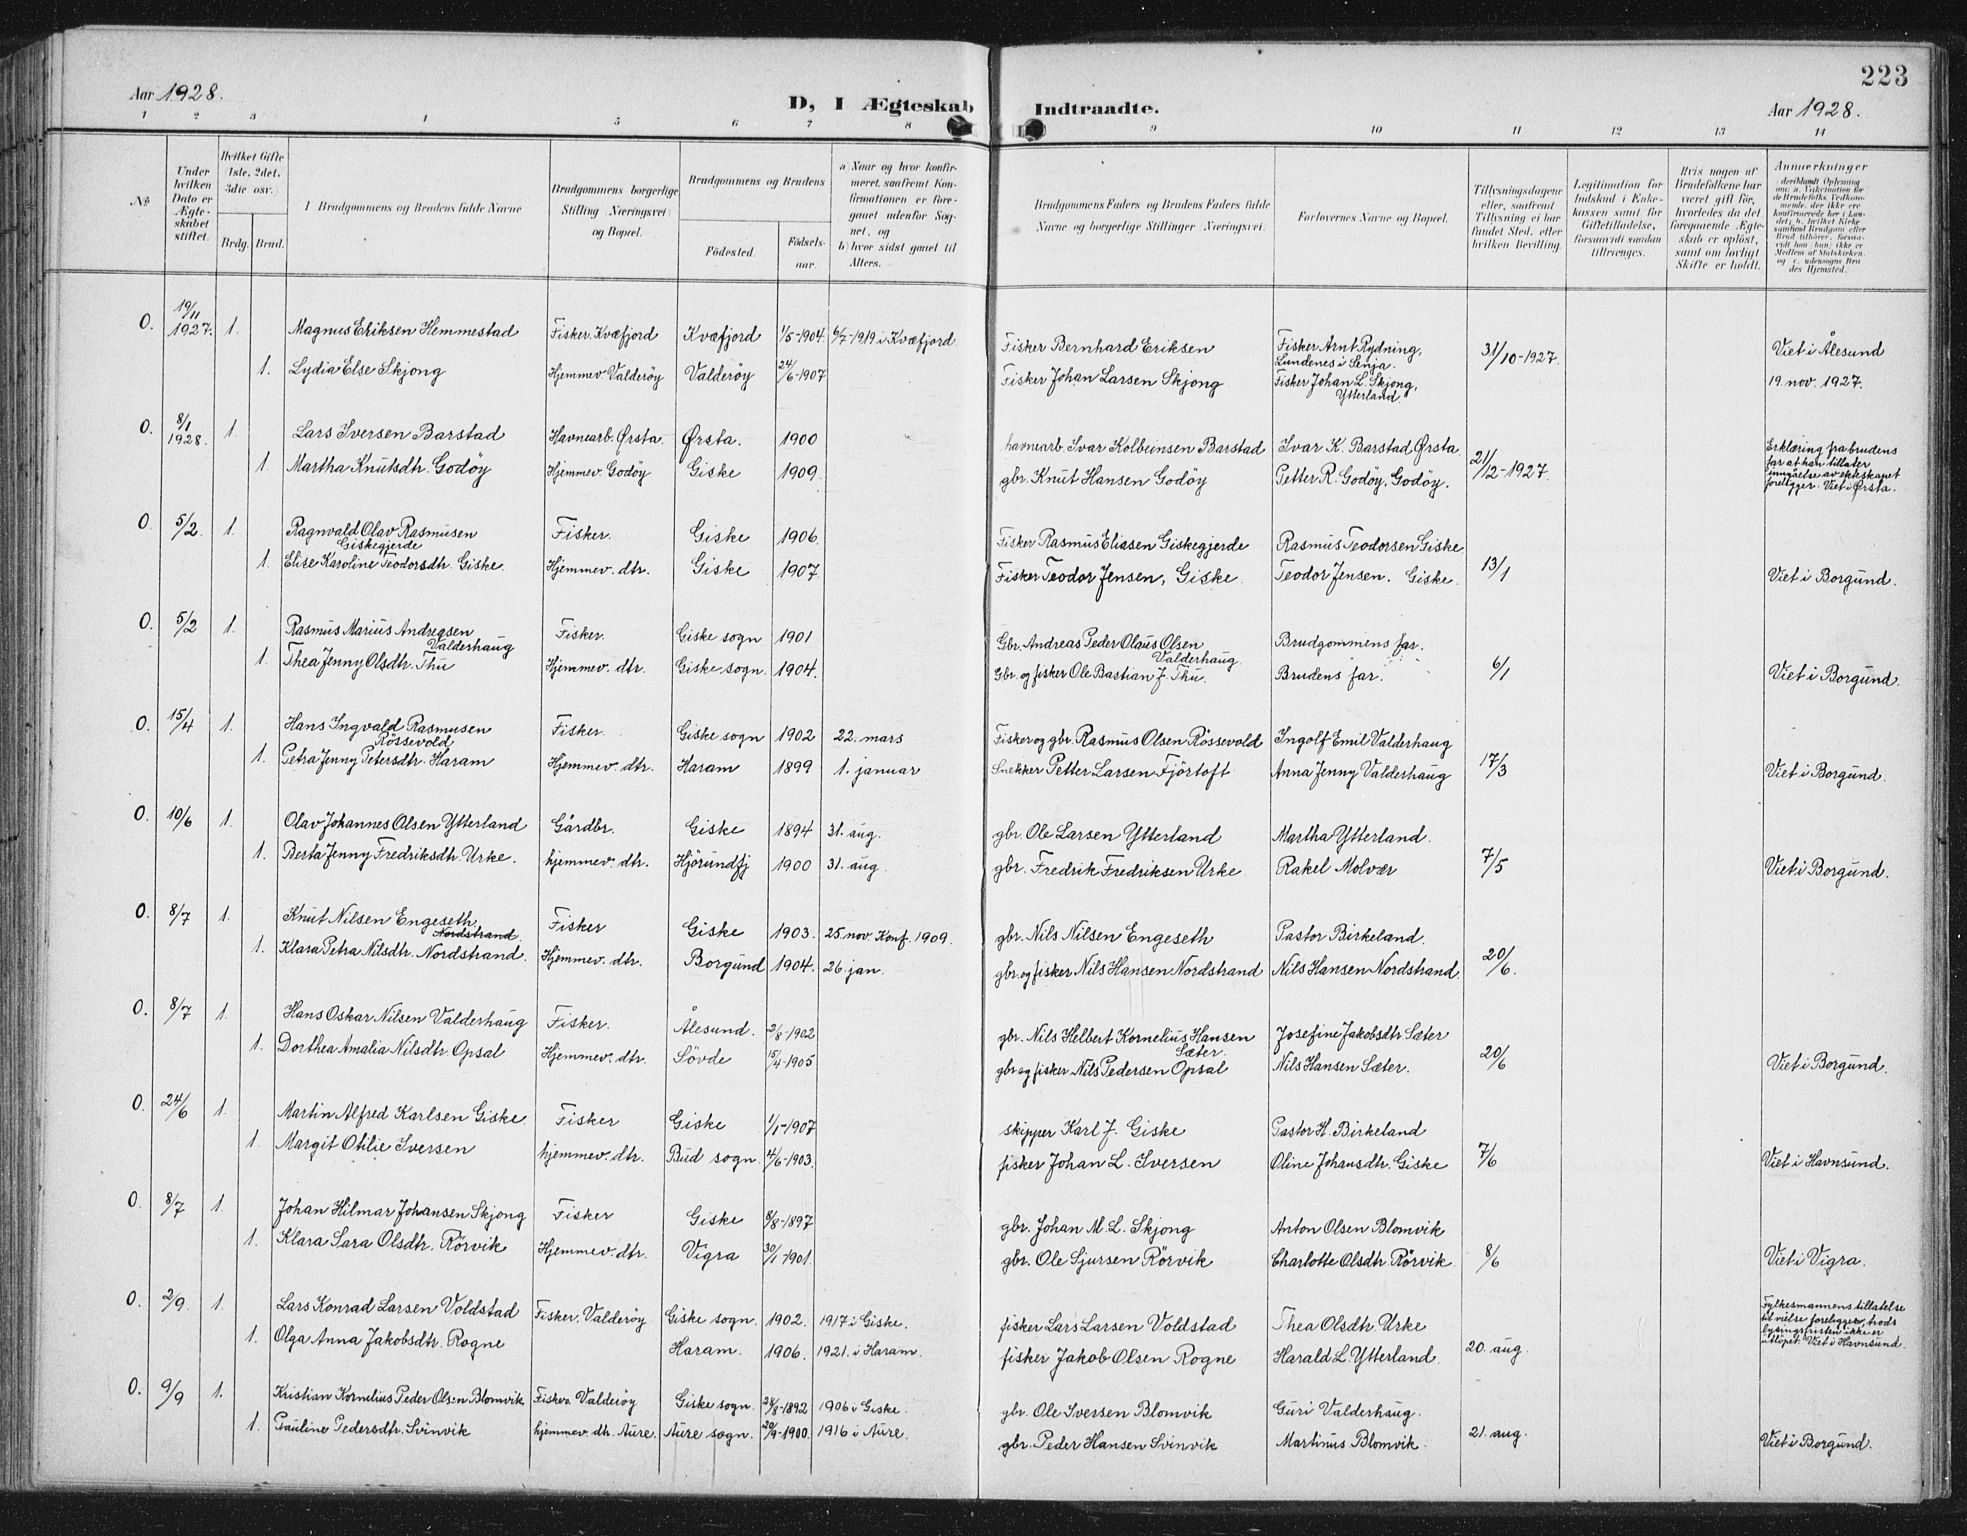 223
Aar 1928.
D, I Ægteskab Indtraadte.
Aar 1928.
1 2 3 4 5 6 7 8 9 10 11 12 13 14
No
Under hvilken Dato er Ægteskabet stiftet.
Hvilket Gifte (1ste, 2det, 3die osv.)
Brdg. Brud.
Brudgommens og Brudens fulde Navne
Brudgommens borgerlige Stilling (Næringsvei) og Bopæl.
Brudgommens og Brudens
Födested.
Födsels-aar.
a Naar og hvor konfirmeret, saafremt Konfirmationen er foregaaet udenfor Sognet, og
b) hvor sidst gaaet til Alters.
Brudgommens Faders og Brudens Faders fulde Navne og borgerlige Stillinger (Næringsvei).
Forlovernes Navne og Bopæl.
Tillysningsdagene eller, saafremt Tillysning ei har fundet Sted, efter hvilken Bevilling.
Legitimation for Indskud i Enkekassen samt for Giftetilladelse, forsaavidt saadan tiltrænges.
Hvis nogen af Brudefolkene har været gift før, hvorledes da det foregaaende Ægteskab er opløst, samt om lovligt Skifte er holdt.
Anmerkninger
deriblandt Oplysning om: a. Vakcination for de Brudefolks Vedkommende, der ikke ere konfirmerede her i Landet; b. hvilket Kirkesamfund Brudgom eller Brud tilhører, forsaavidt han (hun) ikke er Medlem af Statskirken, og c. udensogns Brudes Hjemsted.
0. 19/11 1927. 1. Magnus Eriksen Hemmestad Fisker. Kvæfjord Kvæfjord 1/5-1904. 6/7-1919 i Kvæfjord. Fisker Bernhard Eriksen Fisker Arnt Rydning, Lundenes i Senja. 31/10-1927. Viet i Ålesund
1. Lydia Else Skjong Hjemmev. Valderöy Valderöy 24/6-1907 Fisker Johan Larsen Skjong Fisker Johan L. Skjong, Ytterland 19. nov. 1927.
0. 8/1 1928. 1. Lars Iversen Barstad Havnearb. Ørsta. Ørsta. 1900 havnarb. Ivar Kolbeinsen Barstad Ivar K. Barstad Ørsta 21/12-1927. Erklæring fra brudens far at han tillater inngåelse av ekteskapet foreligger. Viet i Ørsta.
1. Martha Knutsdtr. Godöy Hjemmev. Godöy Giske 1909. gbr. Knut Hansen Godöy Petter R. Godöy, Godöy.
0. 5/2 1. Ragnvald Olav Rasmusen Giskegjerde Fisker. Giske 1906. Fisker Rasmus Eliasen Giskegjerde Rasmus Teodorsen Giske
1. Elise Karoline Teodorsdtr. Giske. Hjemmev. dtr. Giske 1907. Fisker Teodor Jensen, Giske. Teodor Jensen. Giske. 13/1 Viet i Borgund.
0. 5/2 1. Rasmus Marius Andreasen Valderhaug Fisker. Giske sogn 1901 Gbr. Andreas Peder Olaus Olsen Valderhaug. Brudgommens far.
1. Thea Jenny Olsdtr. Thu Hjemmev. dtr. Giske sogn. 1904. Gbr. og fisker Ole Bastian J. Thu. Brudens far. 6/1 Viet i Borgund.
0. 15/4 1. Hans Ingvald Rasmusen Rössevold Fisker. Giske sogn 1902 22. mars Fisker og gbr. Rasmus Olsen Rössevold Ingolf Emil Valderhaug
1. Petra Jenny Petersdtr. Haram Hjemmev. dtr. Haram 1899 1. januar Snekker Petter Larsen Fjörtoft Anna Jenny Valderhaug 17/3 Viet i Borgund.
0. 10/6 1. Olav Johannes Olsen Ytterland Gårdbr. Giske 1894 31. aug. gbr. Ole Larsen Ytterland Martha Ytterland.
1. Berta Jenny Fredriksdtr. Urke. hjemmev. dtr. Hjörundfj 1900 31. aug. gbr. Fredrik Fredriksen Urke. Rakel Molvær 7/5 Viet i Borgund.
0. 8/7 1. Knut Nilsen Engeseth Nordstrand Fisker Giske 1903. 25. nov. Konf. 1909. gbr. Nils Nilsen Engeseth Pastor Birkeland.
1. Klara Petra Nilsdtr. Nordstrand. Hjemmev. dtr. Borgund 1904. 26. jan. gbr. og fisker Nils Hansen Nordstrand Nils Hansen Nordstrand. 20/6.
0. 8/7 1. Hans Oskar Nilsen Valderhaug Fisker. Ålesund. 2/8-1902 gbr. Nils Helbert Kornelius Hansen Sæter. Josefine Jakobsdtr. Sæter
1. Dorthea Amalia Nilsdtr. Opsal Hjemmev. dtr. Sövde 15/4-1905 gbr og fisker Nils Pedersen Opsal Nils Hansen Sæter. 20/6 Viet i Borgund.
0. 24/6 1. Martin Alfred Karlsen Giske Fisker Giske 1/1-1907 skipper Karl J. Giske Pastor H. Birkeland
1. Margit Othlie Iversen hjemmev. dtr. Bud sogn. 4/6-1903. fisker Johan L. Iversen Oline Johansdtr. Giske 7/6 Viet i Havnsund.
0. 8/7 1. Johan Hilmar Johansen Skjong Fisker Giske 8/8-1897 gbr. Johan M. L. Skjong Anton Olsen Blomvik
1. Klara Sara Olsdtr. Rörvik Hjemmev. dtr. Vigra 30/1-1901. gbr. Ole Sjursen Rörvik Charlotte Olsdtr. Rörvik 8/6 Viet i Vigra.
0. 2/9. 1. Lars Konrad Larsen Voldstad Fisker. Valderöy Giske sogn. 1902. 1917 i Giske. fisker Lars Larsen Voldstad Thea Olsdtr. Urke Fylkesmannens tillatelse til vielse foreligger, trods lysingsfristen ikke er utlöpet. Viet i Havnsund.
1. Olga Anna Jakobsdtr. Rogne Haram. 1906. 1921. i Haram. fisker Jakob Olsen Rogne Harald L. Ytterland. 20. aug.
0. 9/9 1. Kristian Kornelius Peder Olsen Blomvik Fisker. Valderöy Giske sogn. 24/8-1892 1906 i Giske. gbr. Ole Iversen Blomvik Guri Valderhaug.
1. Pauline Pedersdtr. Svinvik hjemmev. dtr. Aure. Aure sogn. 20/9-1900. 1916 i Aure. gbr. Peder Hansen Svinvik Martinus Blomvik. 21. aug. Viet i Borgund.